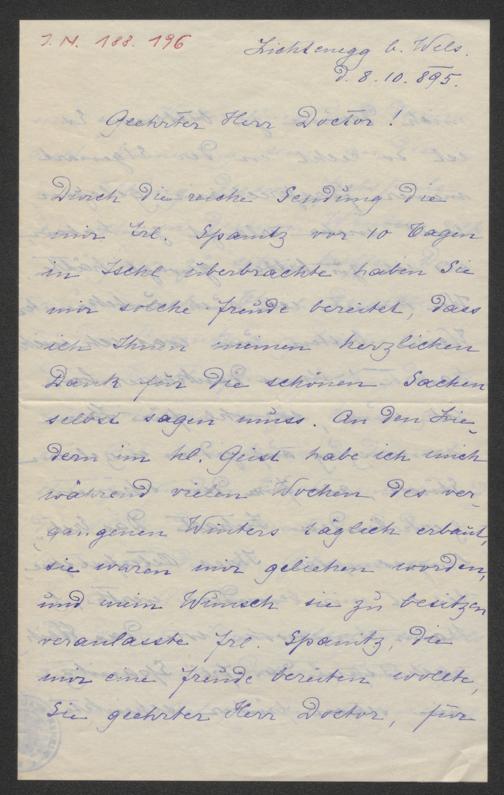 J. N. 188. 196
Lichtenegg b. Wels.
d. 8. 10. 895.
Geehrter Herr Doctor!
Durch die reiche Sendung die
mir Frl. Spanitz vor 10 Tagen
in Ischl überbrachte haben Sie
mir solche Freude bereitet, dass
ich Ihnen meinen herzlichen
Dank für die schönen Sachen
selbst sagen muss. An den Lie-
dern im hl. Geist habe ich mich
während vielen Wochen des ver-
gangenen Winters täglich erbaut,
sie waren mir geliehen worden,
und mein Wunsch sie zu besitzen
veranlasste Frl. Spanitz, die
mir eine Freude bereiten wollte,
Sie geehrter Herr Doctor, für